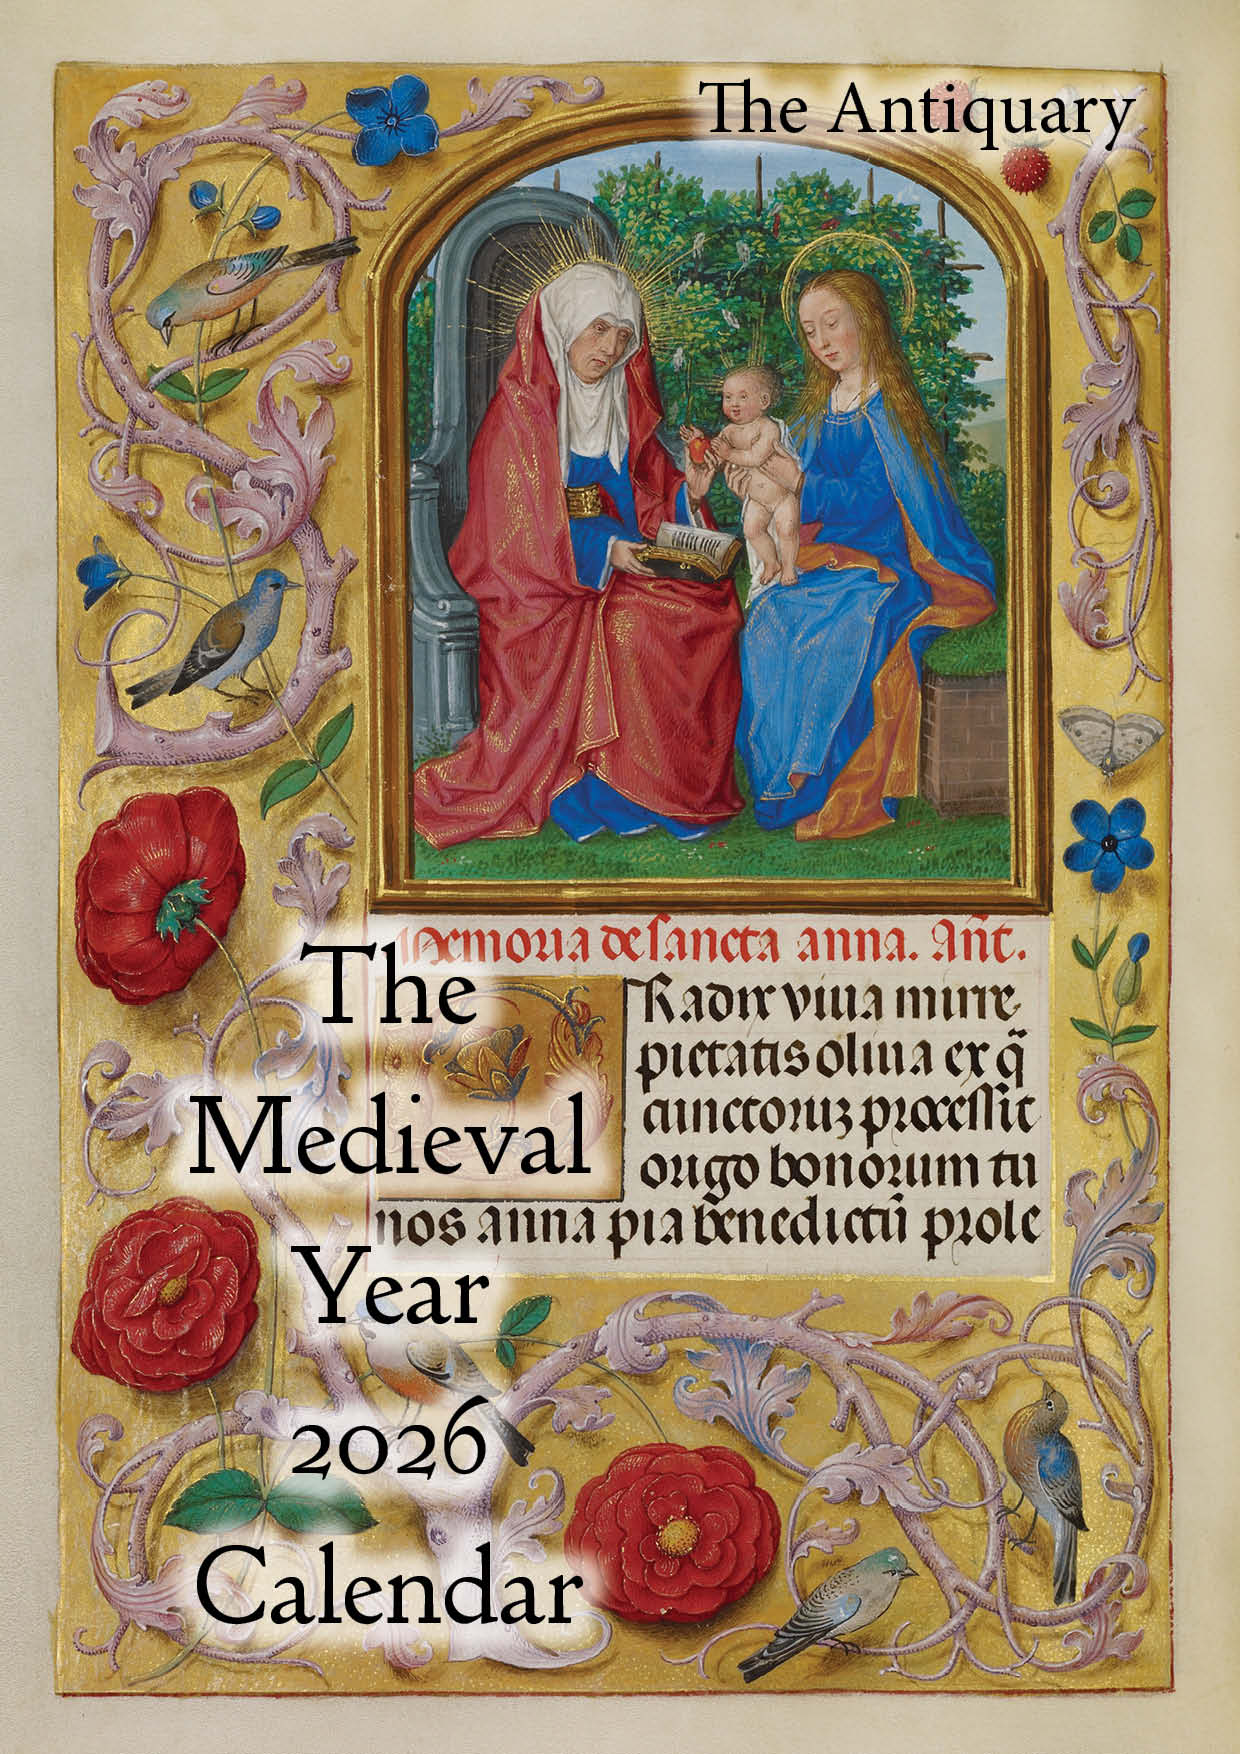 The Antiquary
Memoria de sancta anna. Añt.
Radix viua mirre
pietatis oliua ex q̃
cunctoruz processit
origo bonorum tu
nos anna pia bēnedictū prole
The
Medieval
Year
2026
Calendar